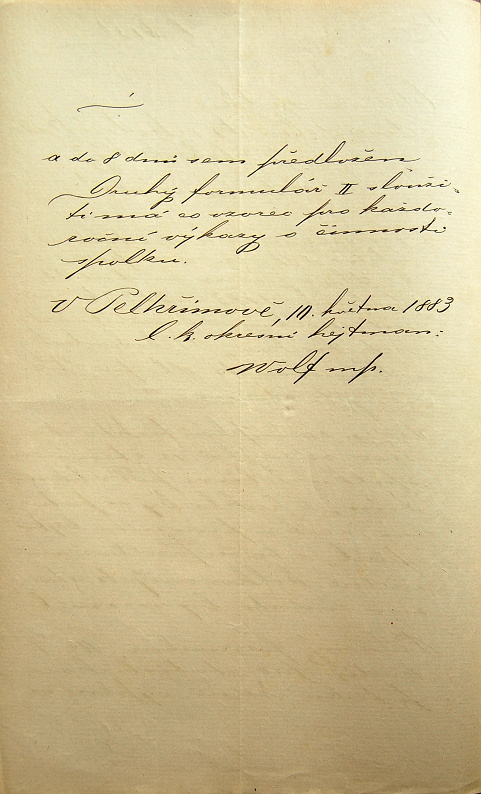 a do 8 dnů sem předložen
Druhý formulář II slouži-
ti má co vzorec pro každo-
roční výkazy o činnosti
spolku.
V Pelhřimově, 10. května 1883
C. k. okresní hejtman:
Wolf mp.